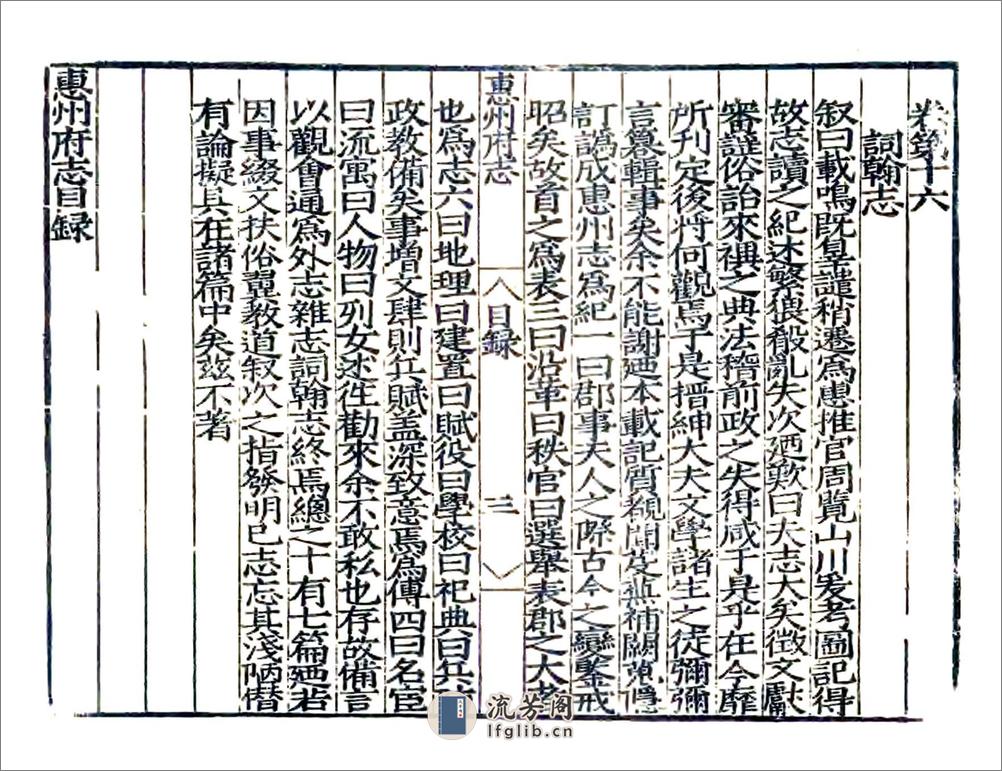 卷第十六
詞翰志
叙曰載鳴既辠譴稍遷爲惠推官周覽山川爰考圖記得
故志讀之紀述繁猥殽亂失次廼歎曰夫志大矣徵文獻
審謹俗詒來禩之典法稽前政之失得咸于是乎在今靡
所刊定後将何觀焉于是搢紳大夫文學諸生之徒彌彌
言纂輯事矣余不能謝廼本載記質覩聞芟蕪補闕蒐隱
訂譌成惠州志爲紀一曰郡事夫人之際古今之變鑒戒
昭矣故首之爲表三曰沿革曰秩官曰選舉表郡之大者
惠州府志
目録
三
也爲志六曰地理曰建置曰賦役曰學校曰祀典曰兵
政教備矣事增文肆則兵賦盖深致意焉爲傳四曰名宦
曰流寓曰人物曰列女述徃勸來余不敢私也存故備言
以觀會通爲外志雜志詞翰志終焉總之十有七篇廼若
因事綴文扶俗翼教道叙次之指發明已志忘其淺陋僭
有論擬具在諸篇中矣玆不著
惠州府志目録
流芳阁
lfglib.cn